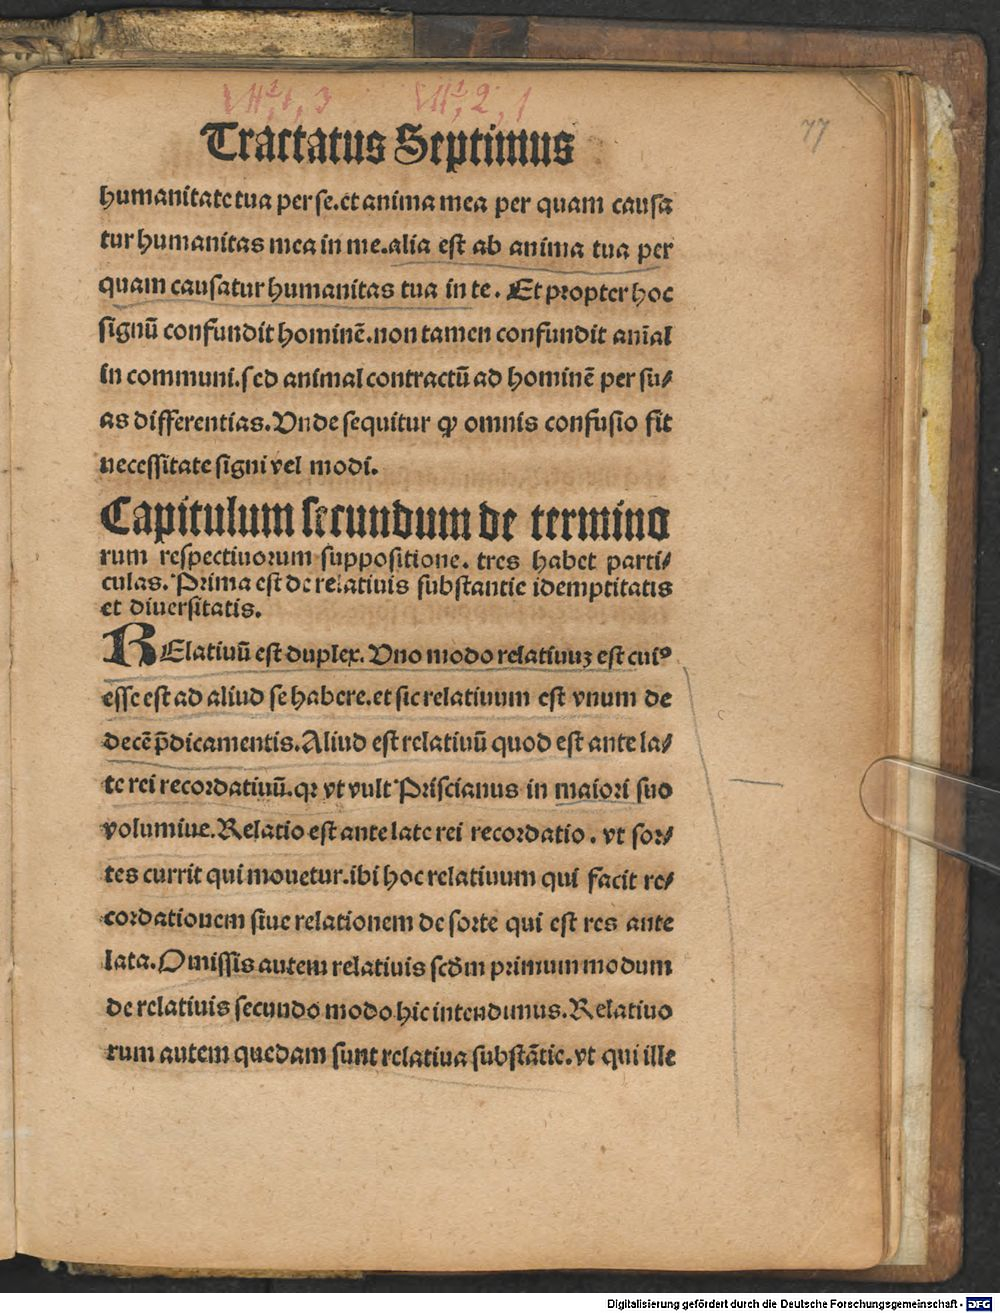 VII,1,3 VII,2,1
77
Tractatus Septimus
humanitate tua per se. et anima mea per quam causa
tur humanitas mea in me. alia est ab anima tua per
quam causatur humanitas tua in te. Et propter hoc
signū confundit hominē. non tamen confundit aīal
in communi. sed animal contractū ad hominē per su⸗
as differentias. Unde sequitur ꝙ omnis confusio fit
necessitate signi vel modi.
Capitulum secundum de termino
rum respectiuorum suppositione. tres habet parti⸗
culas. Prima est de relatiuis substantie idemptitatis
et diuersitatis.
RElatiuū est duplex. Uno modo relatiuuꝫ est cuiꝰ
esse est ad aliud se habere. et sic relatiuum est vnum de
decē p̄dicamentis. Aliud est relatiuū quod est ante la⸗
te rei recordatiuū. qꝛ vt vult Priscianus in maiori suo
volumiue. Relatio est ante late rei recordatio. vt sor⸗
tes currit qui mouetur. ibi hoc relatiuum qui facit re⸗
cordationem siue relationem de sorte qui est res ante
lata. Omissis autem relatiuis scd̄m primum modum
de relatiuis secundo modo hic intendimus. Relatiuo
rum autem quedam sunt relatiua substātie. vt qui ille
Digitalisierung gefördert durch die Deutsche Forschungsgemeinschaft - DFG